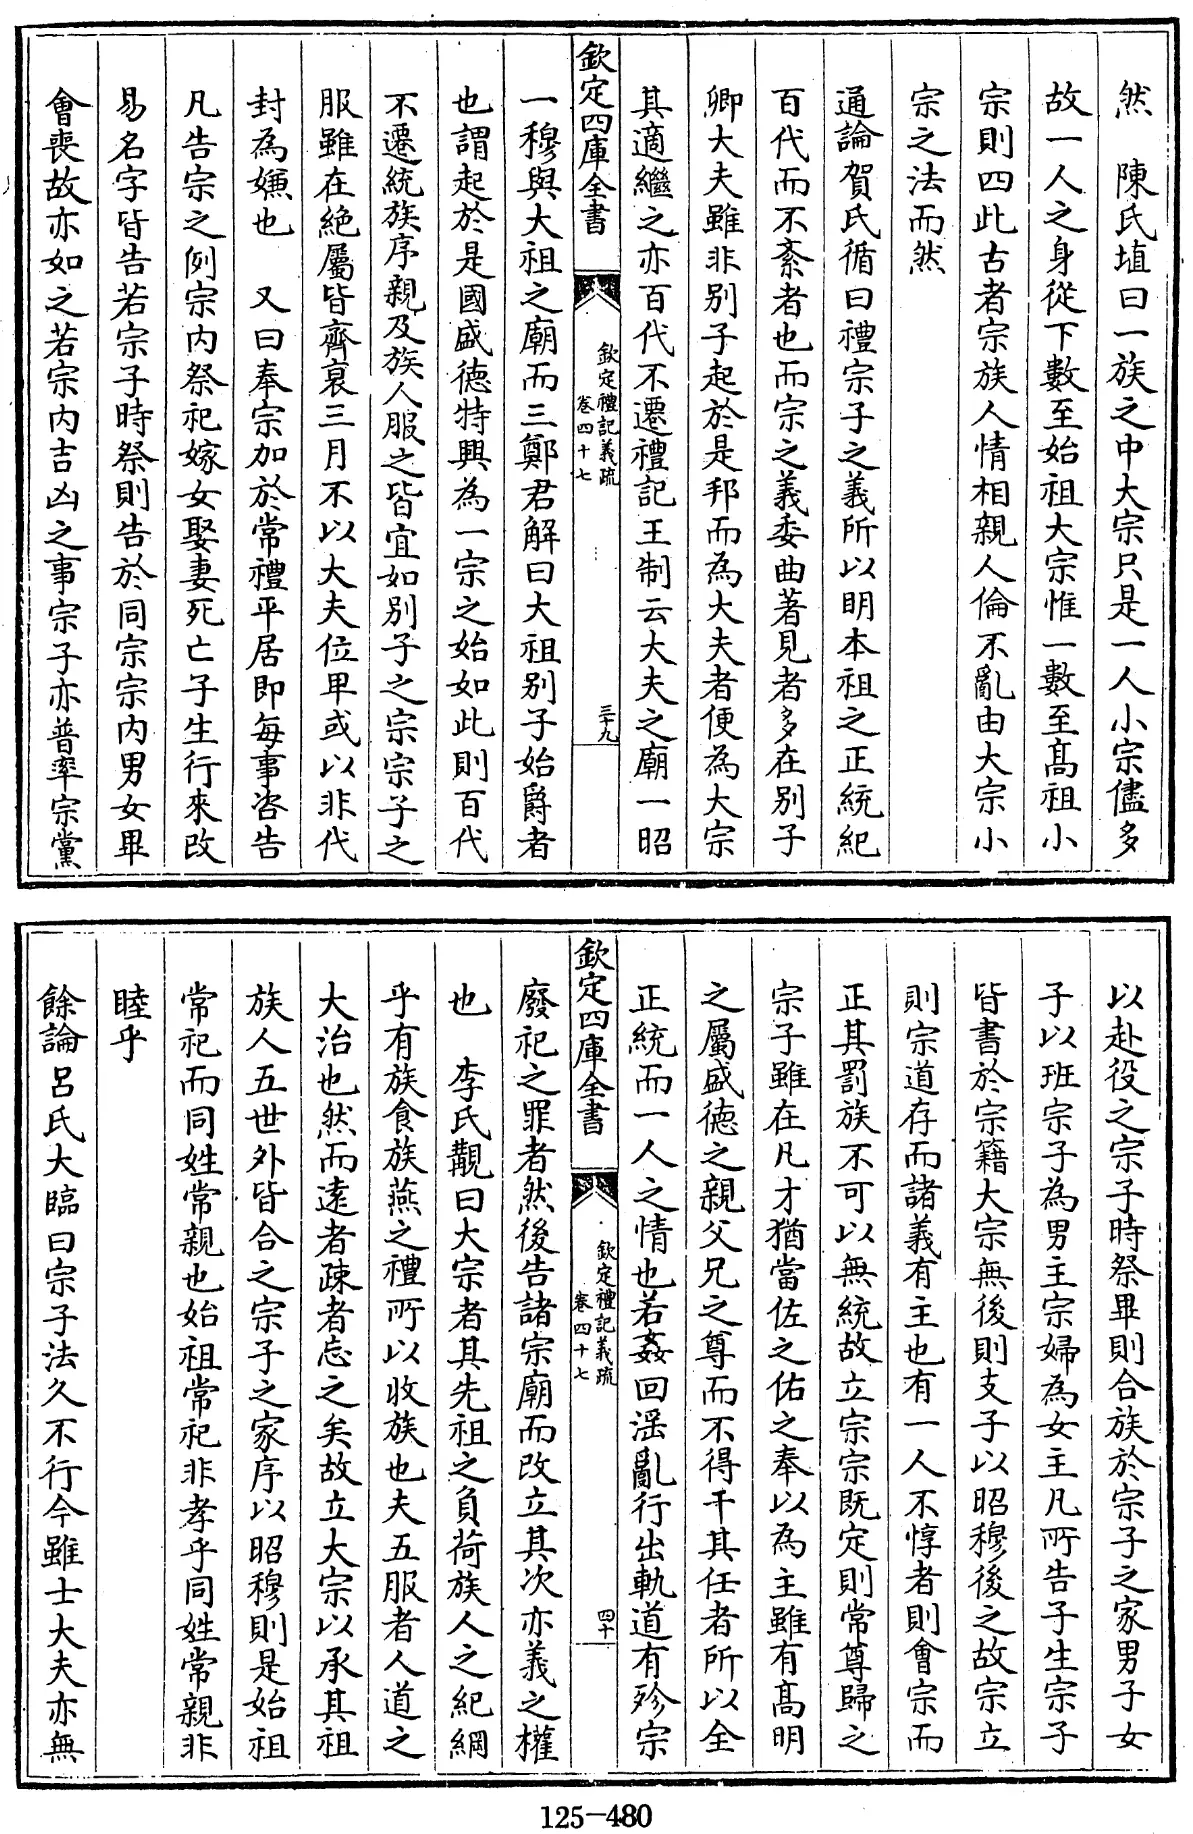 然　陳氏埴曰一族之中大宗只是一人小宗儘多
故一人之身從下數至始祖大宗惟一數至髙祖小
宗則四此古者宗族人情相親人倫不亂由大宗小
宗之法而然
通論賀氏循曰禮宗子之義所以明本祖之正統紀
百代而不紊者也而宗之義委曲著見者多在别子
卿大夫雖非别子起於是邦而為大夫者便為大宗
其適繼之亦百代不遷禮記王制云大夫之廟一昭
欽定四庫全書
欽定禮記義疏
卷四十七
三十九
一穆與大祖之廟而三鄭君解曰大祖别子始爵者
也謂起於是國盛德特興為一宗之始如此則百代
不遷統族序親及族人服之皆宜如别子之宗宗子之
服雖在絶屬皆齊衰三月不以大夫位卑或以非代
封為嫌也　又曰奉宗加於常禮平居即每事咨告
凡告宗之例宗内祭祀嫁女娶妻死亡子生行來改
易名字皆告若宗子時祭則告於同宗宗内男女畢
會喪故亦如之若宗内吉凶之事宗子亦普率宗黨
以赴役之宗子時祭畢則合族於宗子之家男子女
子以班宗子為男主宗婦為女主凡所告子生宗子
皆書於宗籍大宗無後則支子以昭穆後之故宗立
則宗道存而諸義有主也有一人不惇者則會宗而
正其罰族不可以無統故立宗宗既定則常尊歸之
宗子雖在凡才猶當佐之佑之奉以為主雖有髙明
之屬盛德之親父兄之尊而不得干其任者所以全
正統而一人之情也若姦回淫亂行出軌道有殄宗
欽定四庫全書
欽定禮記義疏
卷四十七
四十
廢祀之罪者然後告諸宗廟而改立其次亦義之權
也　李氏覯曰大宗者其先祖之負荷族人之紀綱
乎有族食族燕之禮所以收族也夫五服者人道之
大治也然而逺者疎者忘之矣故立大宗以承其祖
族人五世外皆合之宗子之家序以昭穆則是始祖
常祀而同姓常親也始祖常祀非孝乎同姓常親非
睦乎
餘論吕氏大臨曰宗子法久不行今雖士大夫亦無
125-480